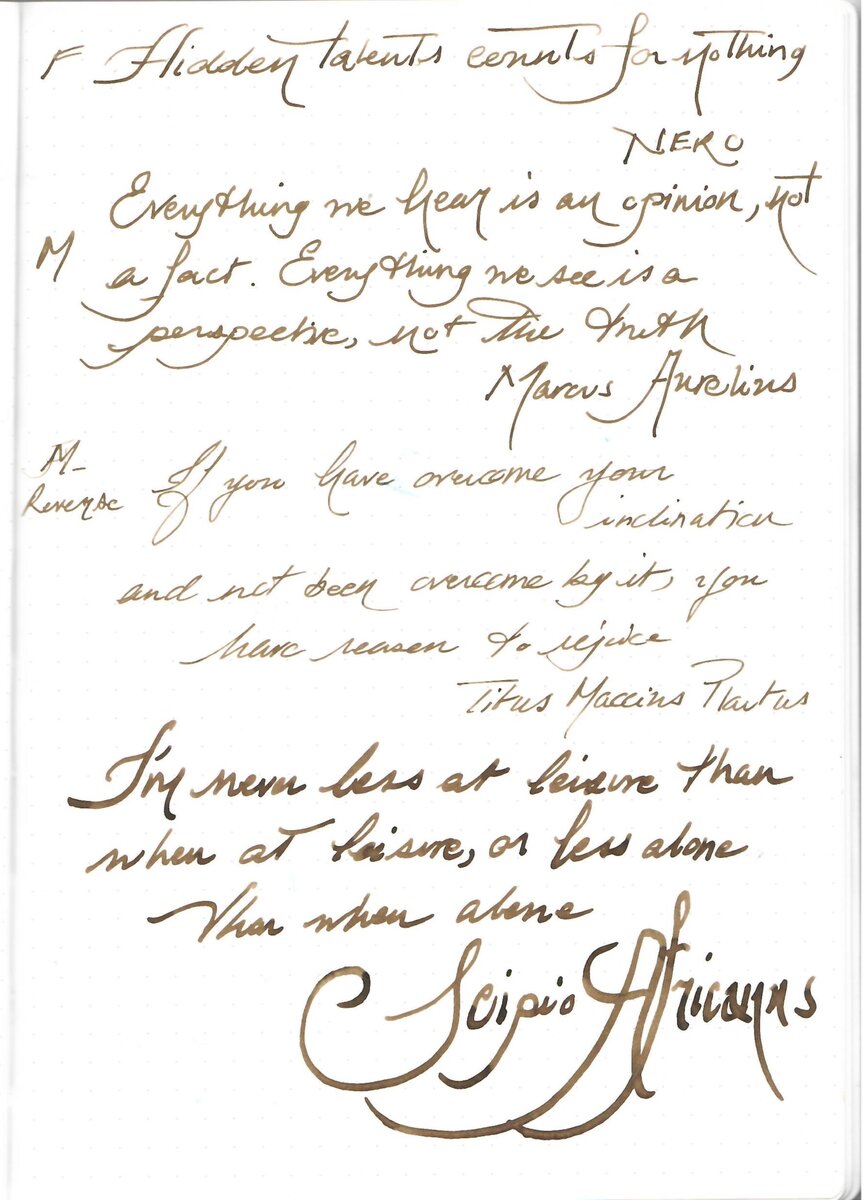 F Hidden talents counts for nothing
NERO
Everything we hear is an opinion, not
M a fact. Everything we see is a
perspective, not the truth
Marcus Aurelius
M-
Reverse If you have overcome your
inclination
and not been overcome by it, you
have reason to rejoice
Titus Maccius Plautus
I'm never less at leisure than
when at leisure, or less alone
than when alone
Scipio Africanus